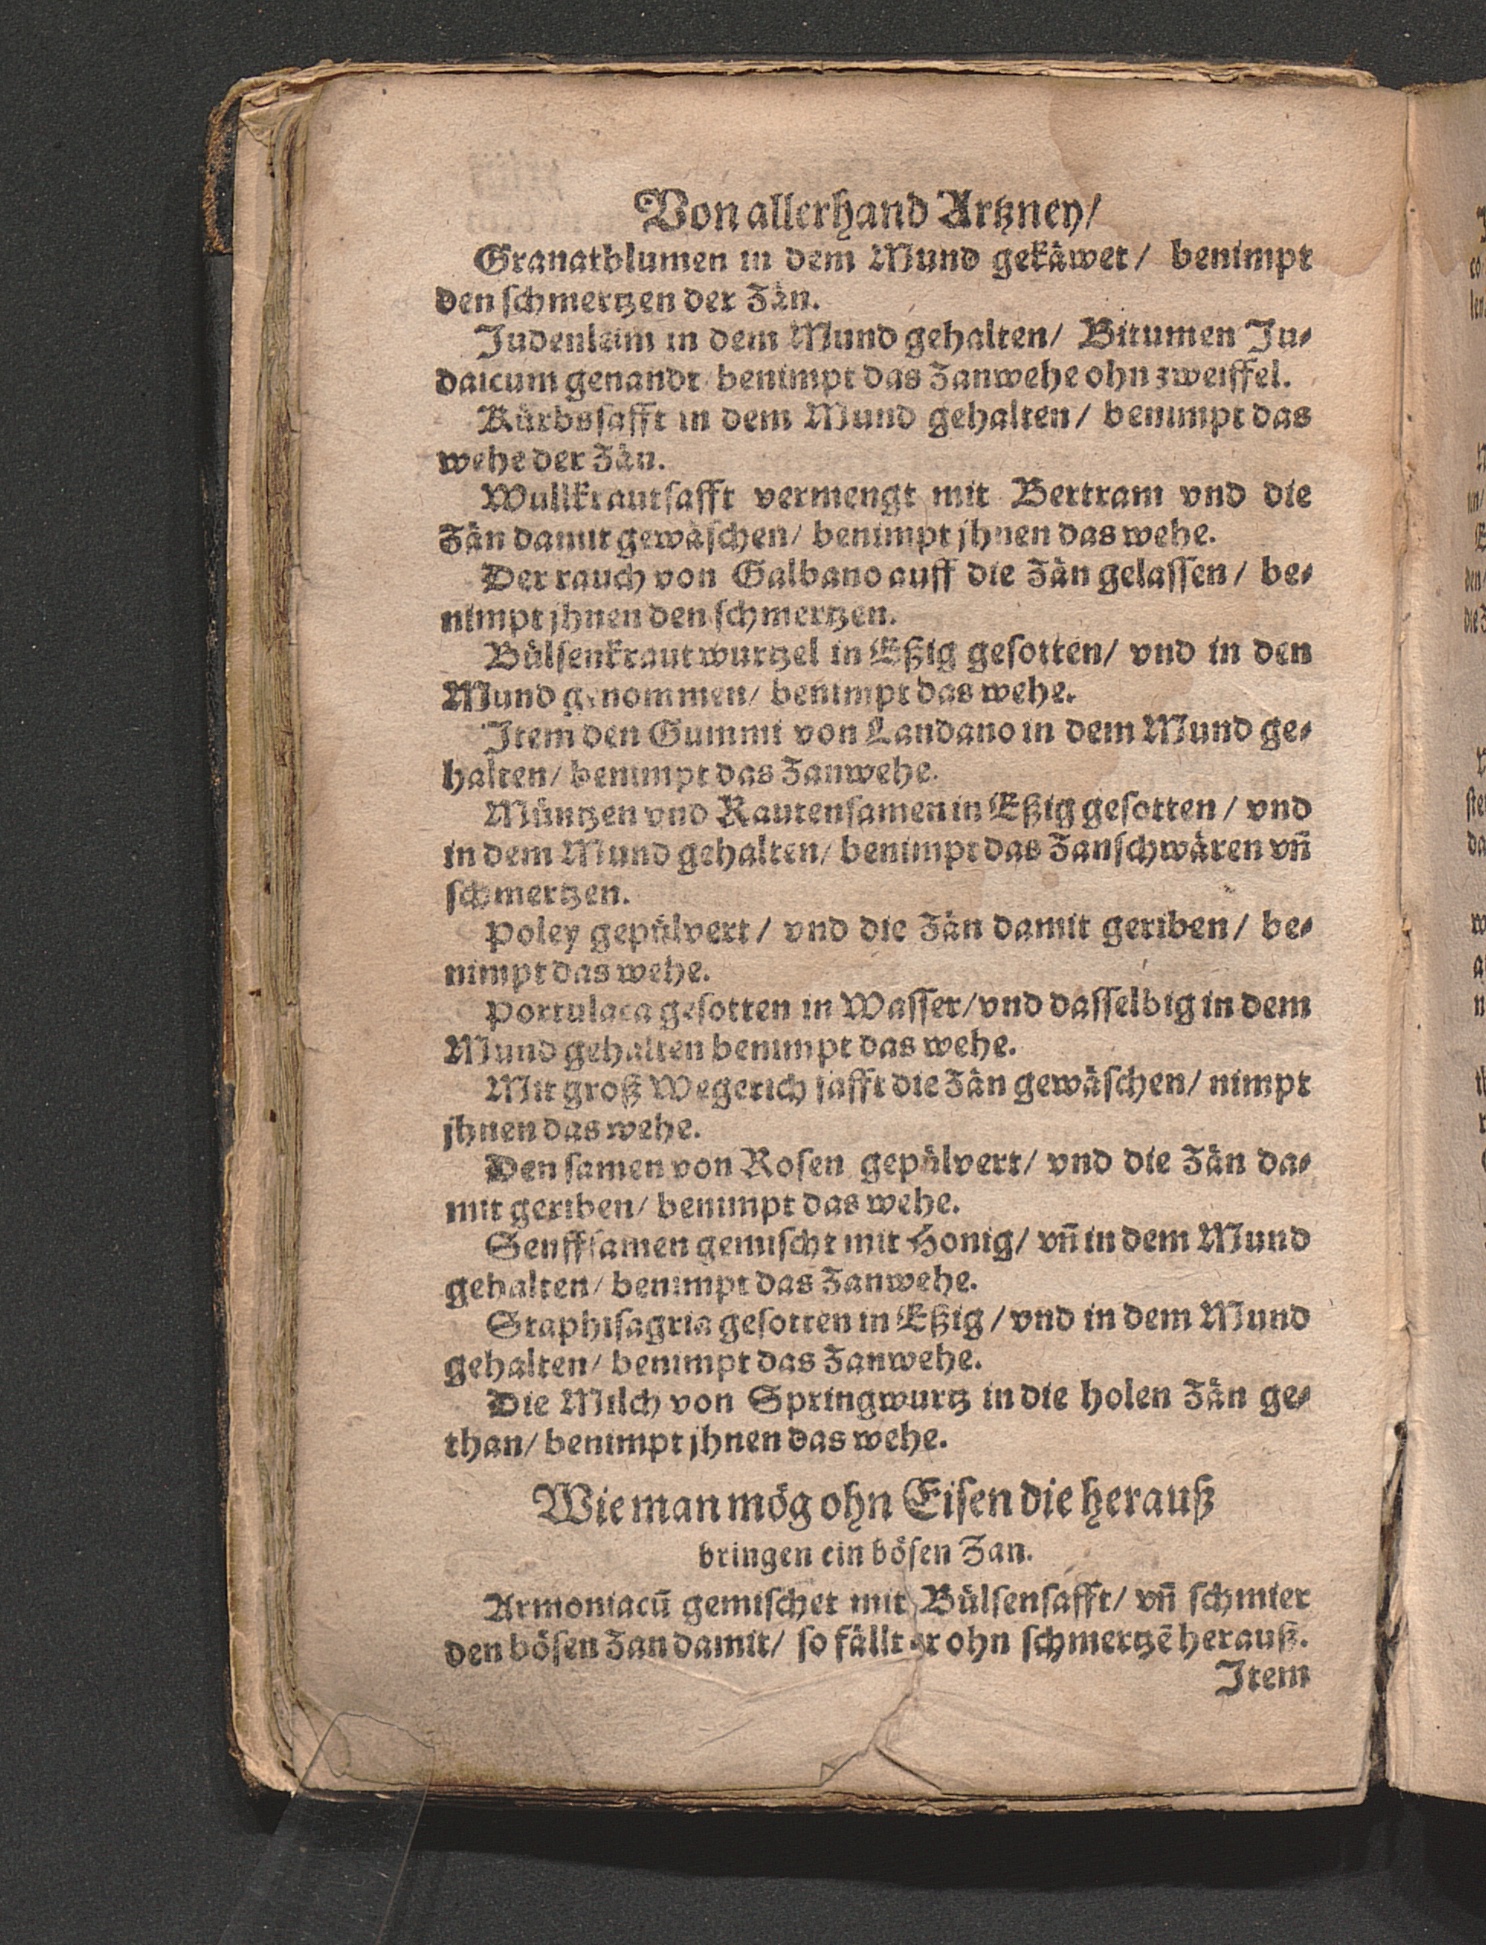 Von allerhand Artzney/
Granatblumen in dem Mund gekäwet/ benimpt
den schmertzen der Zän.
Judenleim in dem Mund gehalten/ Bitumen Ju⸗
daicum genandt/ benimpt das Zanwehe ohn zweiffel.
Kürbssafft in dem Mund gehalten/ benimpt das
wehe der Zän.
Wullkrautsafft vermengt mit Bertram vnd die
Zän damit gewäschen/ benimpt jhnen das wehe.
Der rauch von Galbano auff die Zän gelassen/ be⸗
nimpt jhnen den schmertzen.
Bülsenkraut wurtzel in Eßig gesotten/ vnd in den
Mund genommen/ benimpt das wehe.
Item den Gummi von Landano in dem Mund ge⸗
halten/ benimpt das Zanwehe.
Müntzen vnd Rautensamen in Eßig gesotten/ vnd
in dem Mund gehalten/ benimpt das Zanschwären vn̄
schmertzen.
Poley gepülvert/ vnd die Zän damit geriben/ be⸗
nimpt das wehe.
Portulaca gesotten in Wasser/ vnd dasselbig in dem
Mund gehalten benimpt das wehe.
Mit groß Wegerich safft die Zän gewäschen/ nimpt
jhnen das wehe.
Den samen von Rosen gepülvert/ vnd die Zän da⸗
mit geriben/ benimpt das wehe.
Senffsamen gemischt mit Honig/ vn̄ in dem Mund
gehalten/ benimpt das Zanwehe.
Staphisagria gesotten in Eßig/ vnd in dem Mund
gehalten/ benimpt das Zanwehe.
Die Milch von Springwurtz in die holen Zän ge⸗
than/ benimpt jhnen das wehe.
Wie man mög ohn Eisen die herauß
bringen ein bösen Zan.
Armoniacū gemischet mit Bülsensafft/ vn̄ schmier
den bösen Zan damit/ so fällt er ohn schmertzē herauß.
Item